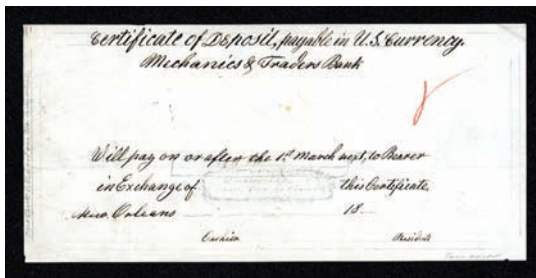 Certificate of Deposit, payable in U.S. Currency.
Mechanics & Traders Bank
Will pay on or after the 1st March next, to Bearer
in Exchange of this Certificate.
New Orleans 18
Cashier President